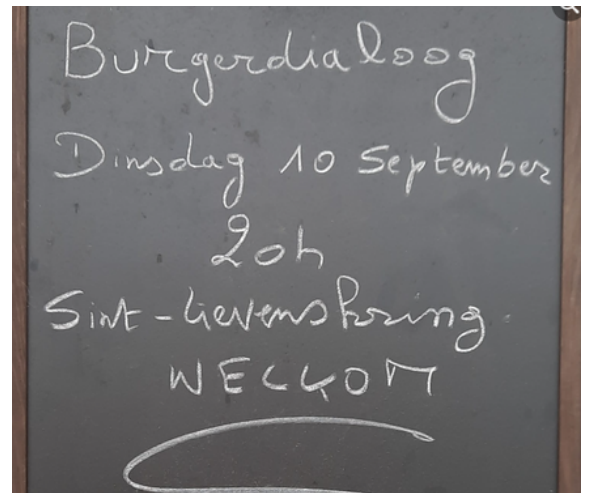 Burgerdialoog
Dinsdag 10 September
20h
Sint-Lievenskring
WELKOM